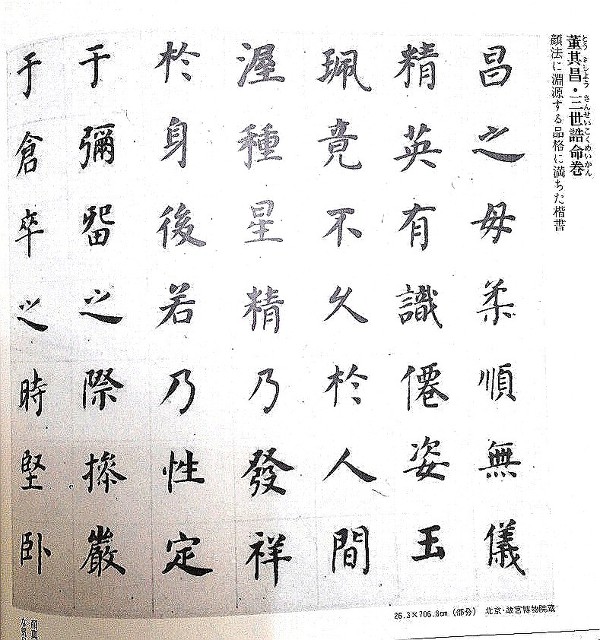 董其昌・三世誥命巻
顔法に淵源する品格に満ちた楷書
昌之母柔順無儀
精英有識僊姿玉
珮竟不久於人間
渥種星精乃發祥
於身後若乃性定
于彌畱之際捧嚴
于倉卒之時堅臥
26.3×706.8cm（部分） 北京・故宮博物院蔵